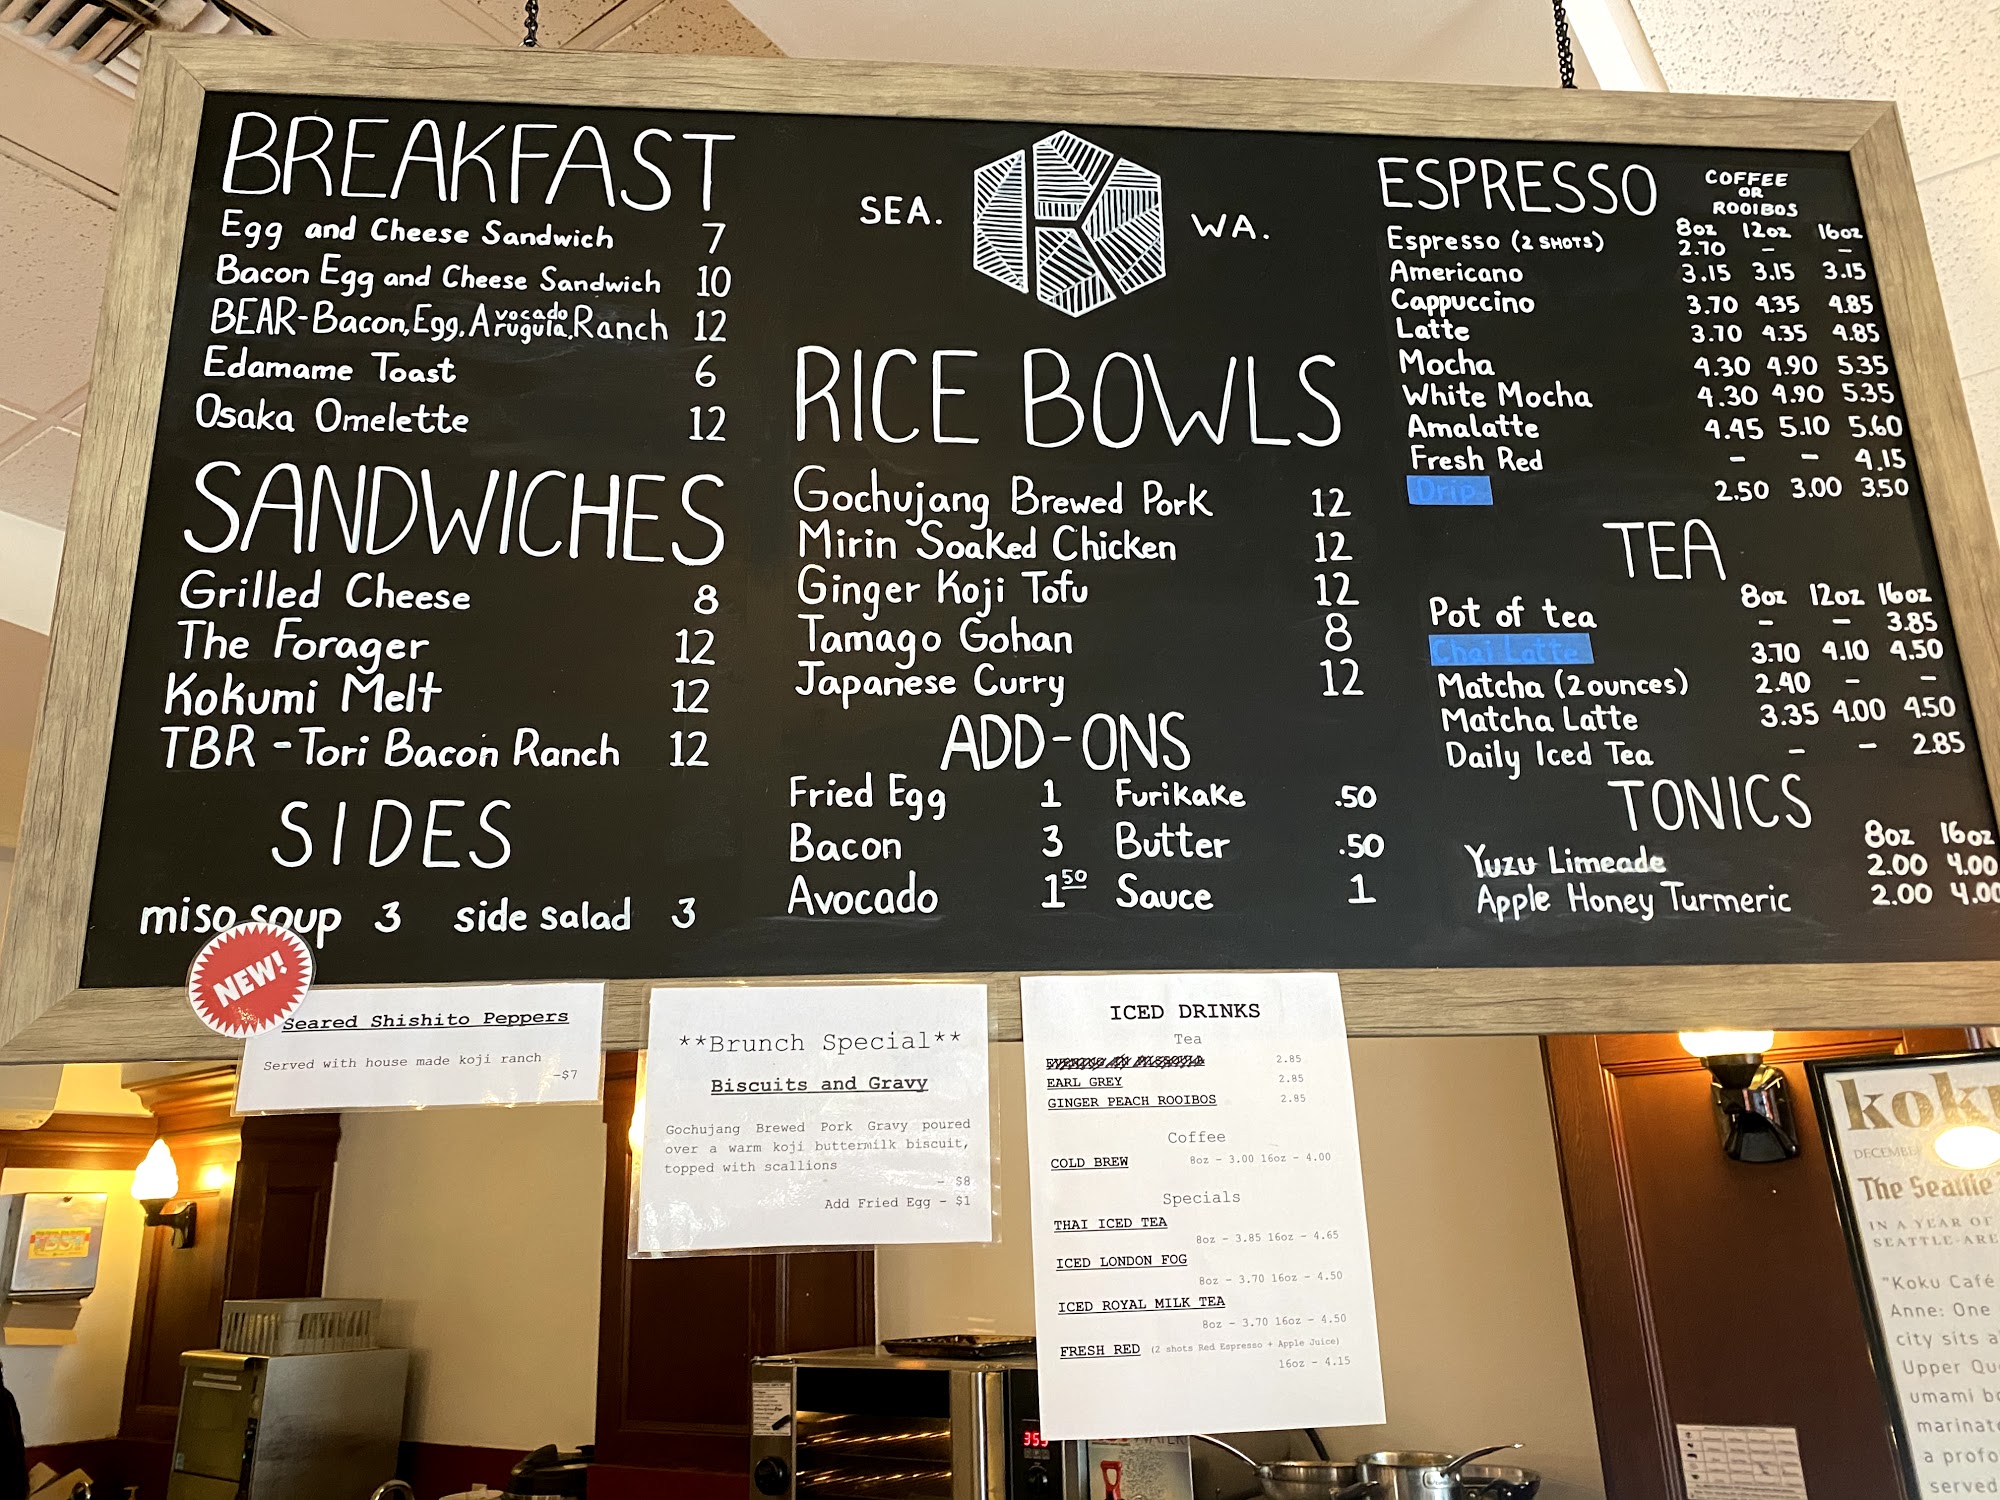 BREAKFAST
Egg and Cheese Sandwich 7
Bacon Egg and Cheese Sandwich 10
BEAR-Bacon, Egg, Avocado, Arugula, Ranch 12
Edamame Toast 6
Osaka Omelette 12
SANDWICHES
Grilled Cheese 8
The Forager 12
Kokumi Melt 12
TBR - Tori Bacon Ranch 12
SIDES
miso soup 3 side salad 3
SEA. WA.
RICE BOWLS
Gochujang Brewed Pork 12
Mirin Soaked Chicken 12
Ginger Koji Tofu 12
Tamago Gohan 8
Japanese Curry 12
ADD-ONS
Fried Egg 1 Furikake .50
Bacon 3 Butter .50
Avocado 1 50 Sauce 1
ESPRESSO
COFFEE
OR
ROOIBOS
8oz 12oz 16oz
Espresso (2 SHOTS) 2.70 - -
Americano 3.15 3.15 3.15
Cappuccino 3.70 4.35 4.85
Latte 3.70 4.35 4.85
Mocha 4.30 4.90 5.35
White Mocha 4.30 4.90 5.35
Amalatte 4.45 5.10 5.60
Fresh Red - - 4.15
Drip 2.50 3.00 3.50
TEA
8oz 12oz 16oz
Pot of tea - - 3.85
Chai Latte 3.70 4.10 4.50
Matcha (2 ounces) 2.40 - -
Matcha Latte 3.35 4.00 4.50
Daily Iced Tea - - 2.85
TONICS
8oz 16oz
Yuzu Limeade 2.00 4.00
Apple Honey Turmeric 2.00 4.00
NEW!
Seared Shishito Peppers
Served with house made koji ranch
-$7
**Brunch Special**
Biscuits and Gravy
Gochujang Brewed Pork Gravy poured
over a warm koji buttermilk biscuit,
topped with scallions
- $8
Add Fried Egg - $1
ICED DRINKS
Tea
2.85
EARL GREY 2.85
GINGER PEACH ROOIBOS 2.85
Coffee
COLD BREW 8oz - 3.00 16oz - 4.00
Specials
THAI ICED TEA
8oz - 3.85 16oz - 4.65
ICED LONDON FOG
8oz - 3.70 16oz - 4.50
ICED ROYAL MILK TEA
8oz - 3.70 16oz - 4.50
FRESH RED (2 shots Red Espresso + Apple Juice)
16oz - 4.15
koku
The Seattle
IN A YEAR OF
SEATTLE-ARE
"Koku Café
Anne: One
city sits a
Upper Qu
umami b
marinat
a profo
served